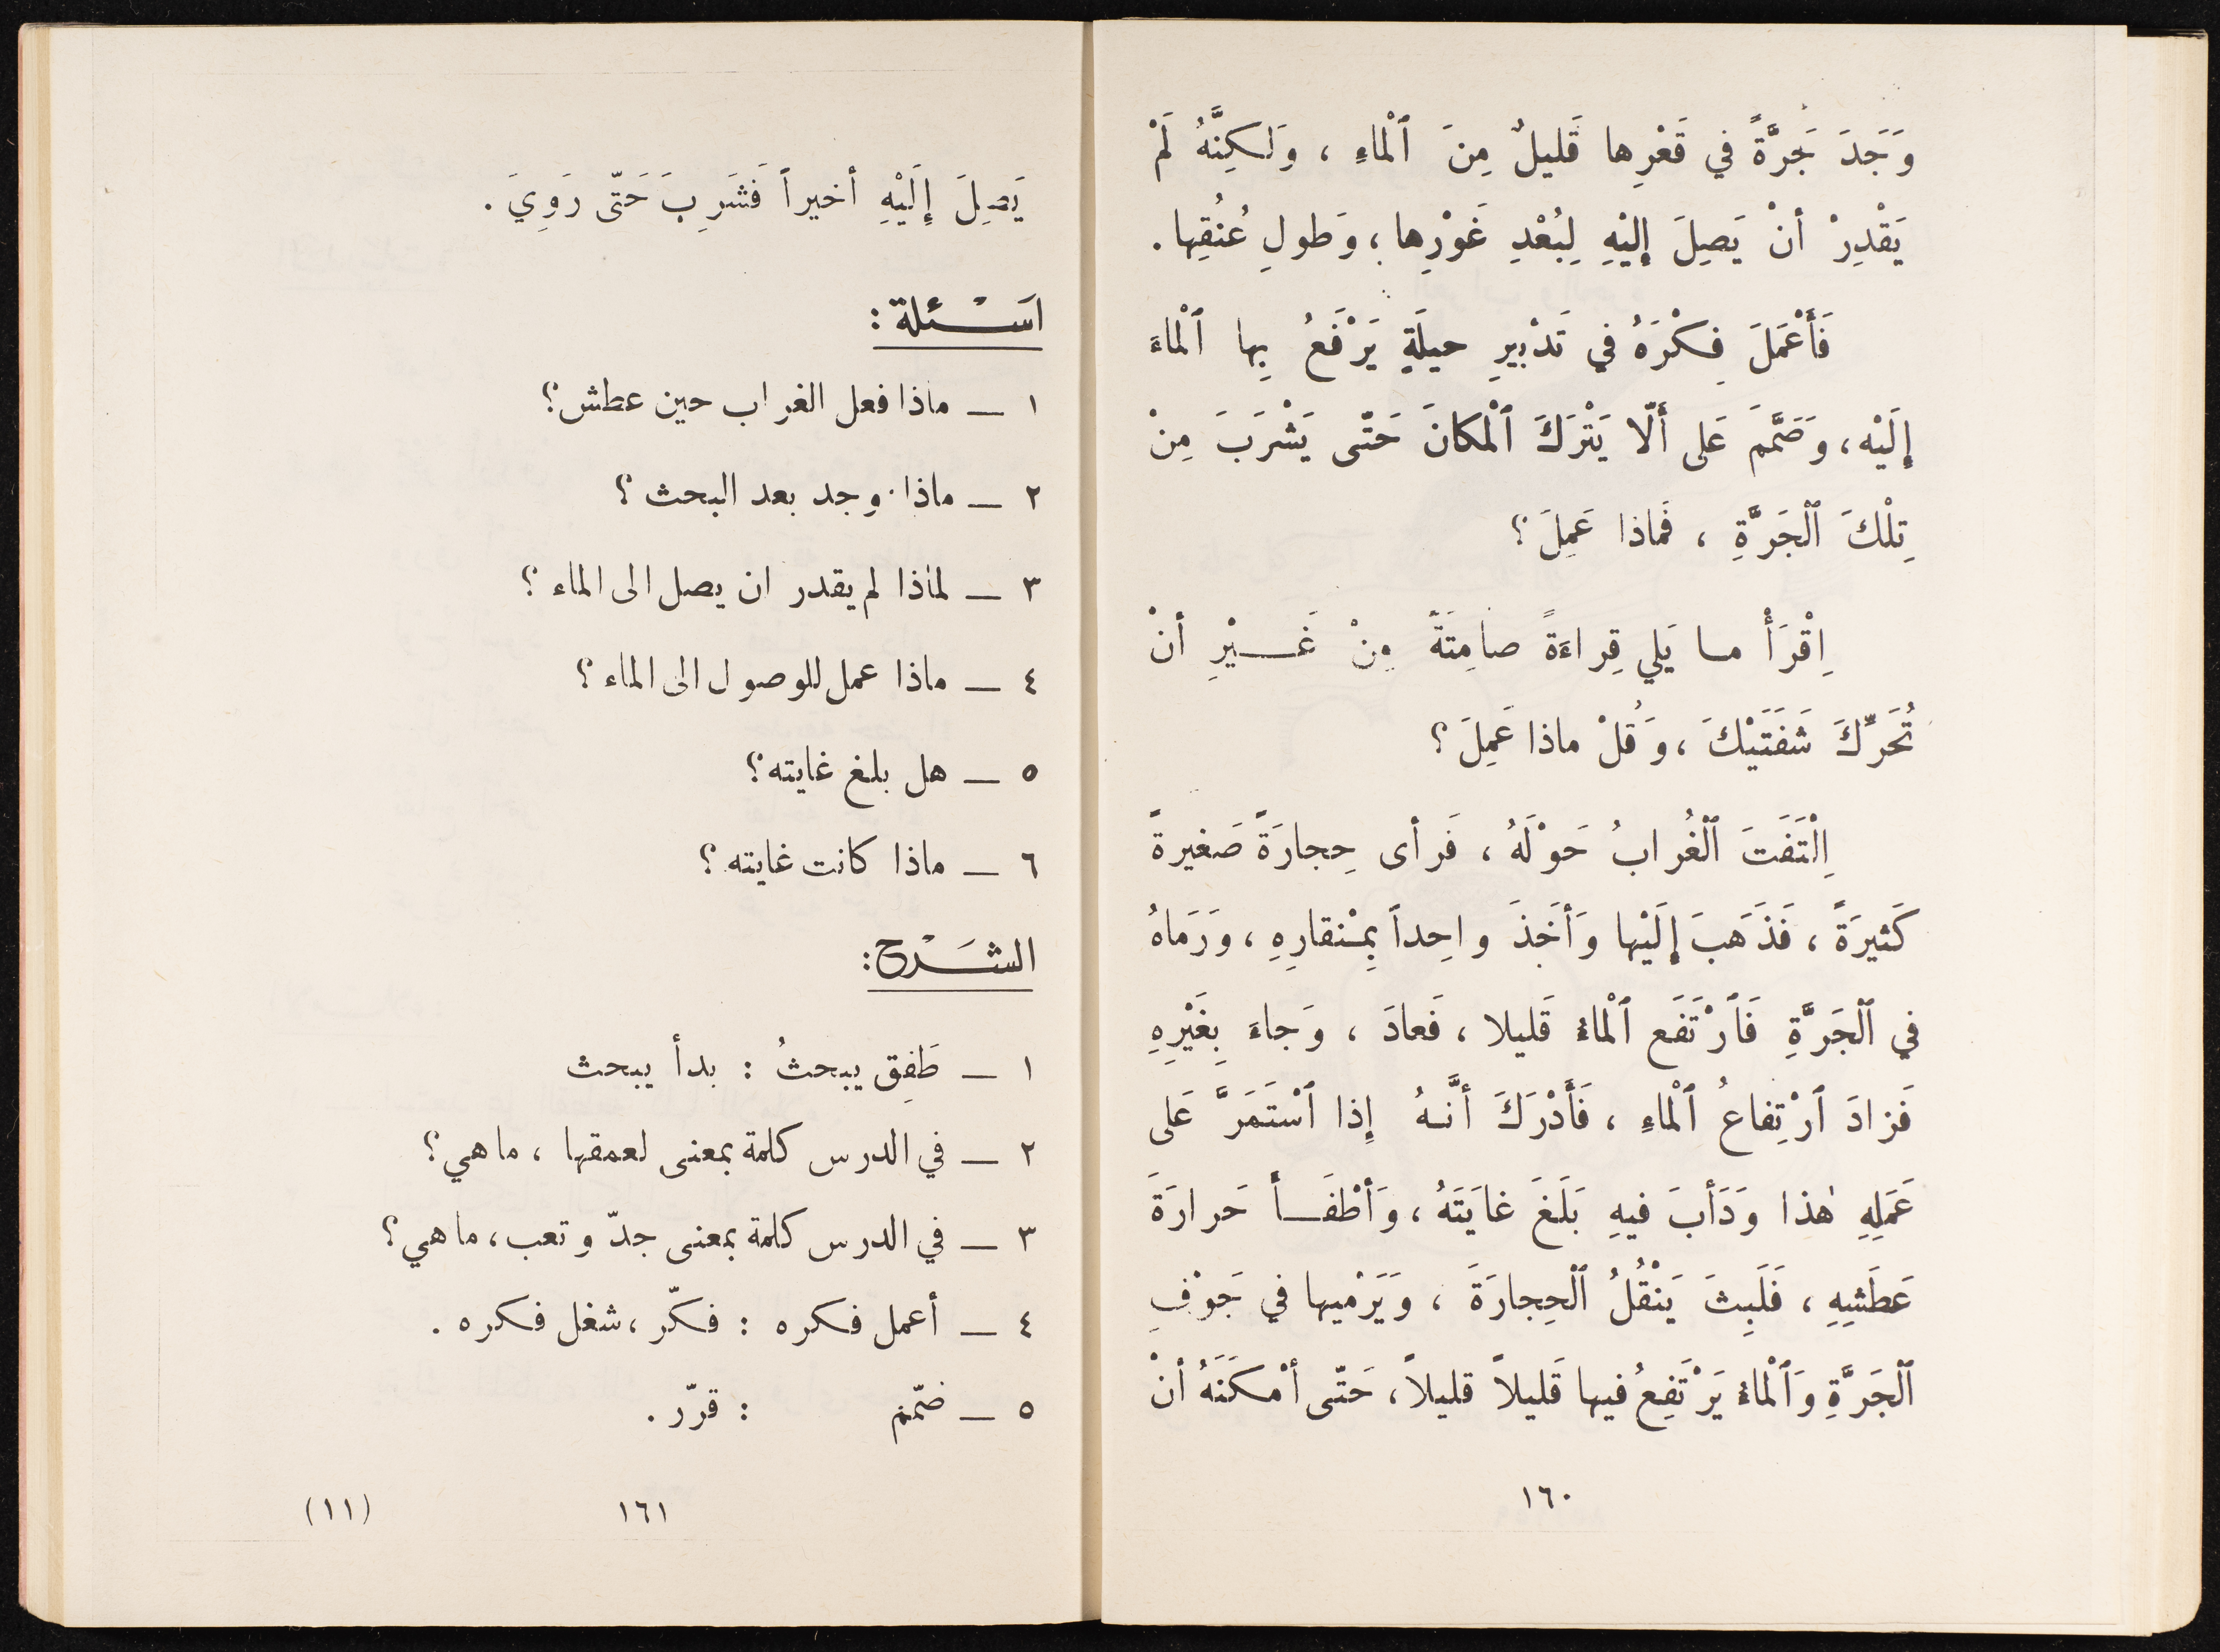 وَجَدَ جَرَّةً في قَعْرِها قَليلٌ مِنَ ٱلْماءِ ، وَلكِنَّهُ لَمْ
يَقْدِرْ أنْ يَصِلَ إلَيْهِ لِبُعْدِ غَوْرِها ، وَطولِ عُنُقِها .
فَأَعْمَلَ فِكْرَهُ في تَدْبيرِ حيلَةٍ يَرْفَعُ بِها ٱلْماءَ
إلَيْه ، وَصَمَّمَ عَلى أَلّا يَتْرَكَ ٱلْمكانَ حَتّى يَشْرَبَ مِنْ
تِلْكَ ٱلْجَرَّةِ ، فَماذا عَمِلَ ؟
اِقْرَأْ ما يَلي قِراءَةً صامِتَةً مِنْ غَـــيْرِ أنْ
تُحَرِّكَ شَفَتَيْكَ ، وَقُلْ ماذا عَمِلَ ؟
اِلْتَفَتَ ٱلْغُرابُ حَوْلَهُ ، فَرأى حِجارَةً صَغيرةً
كَثيرَةً ، فَذَهَبَ إلَيْها وَأخَذَ واحِداً بِمِنْقارِهِ ، وَرَمَاهُ
في ٱلْجَرَّةِ فَٱرْتَفَع ٱلْماءُ قَليلا ، فَعادَ ، وَجاءَ بِغَيْرِهِ
فَزادَ ٱرْتِفاعُ ٱلْماءِ ، فَأَدْرَكَ أنَّـهُ إذا ٱسْتَمَرَّ عَلى
عَمَلِهِ هٰذا وَدَأبَ فيهِ بَلَغَ غايَتَهُ ، وَأطْفَـــأَ حَرارَةَ
عَطَشِهِ ، فَلَبِثَ يَنْقُلُ ٱلْحِجارَةَ ، وَيَرْميها في جَوْفِ
ٱلْجَرَّةِ وَٱلْماءُ يَرْتَفِعُ فيها قَليلاً قليلاً ، حَتّى أمْكَنَهُ أنْ
١٦٠
يَصِلَ إلَيْهِ أخيراً فَشَرِبَ حَتّى رَوِيَ .
اَسْــئلة :
١ ـ ماذا فعل الغراب حين عطش ؟
٢ ـ ماذا وجد بعد البحث ؟
٣ ـ لماذا لم يقدر ان يصل الى الماء ؟
٤ ـ ماذا عمل للوصول الى الماء ؟
٥ ـ هل بلغ غايته ؟
٦ ـ ماذا كانت غايته ؟
الشَــرْح :
١ ـ طَفِق يبحثُ : بدأ يبحث
٢ ـ في الدرس كلمة بمعنى لعمقها ، ما هي ؟
٣ ـ في الدرس كلمة بمعنى جدّ وتعب ، ما هي ؟
٤ ـ أعمل فكره : فكّر ، شغل فكره .
٥ ـ ضمّم : قرّر .
١٦١
(١١)